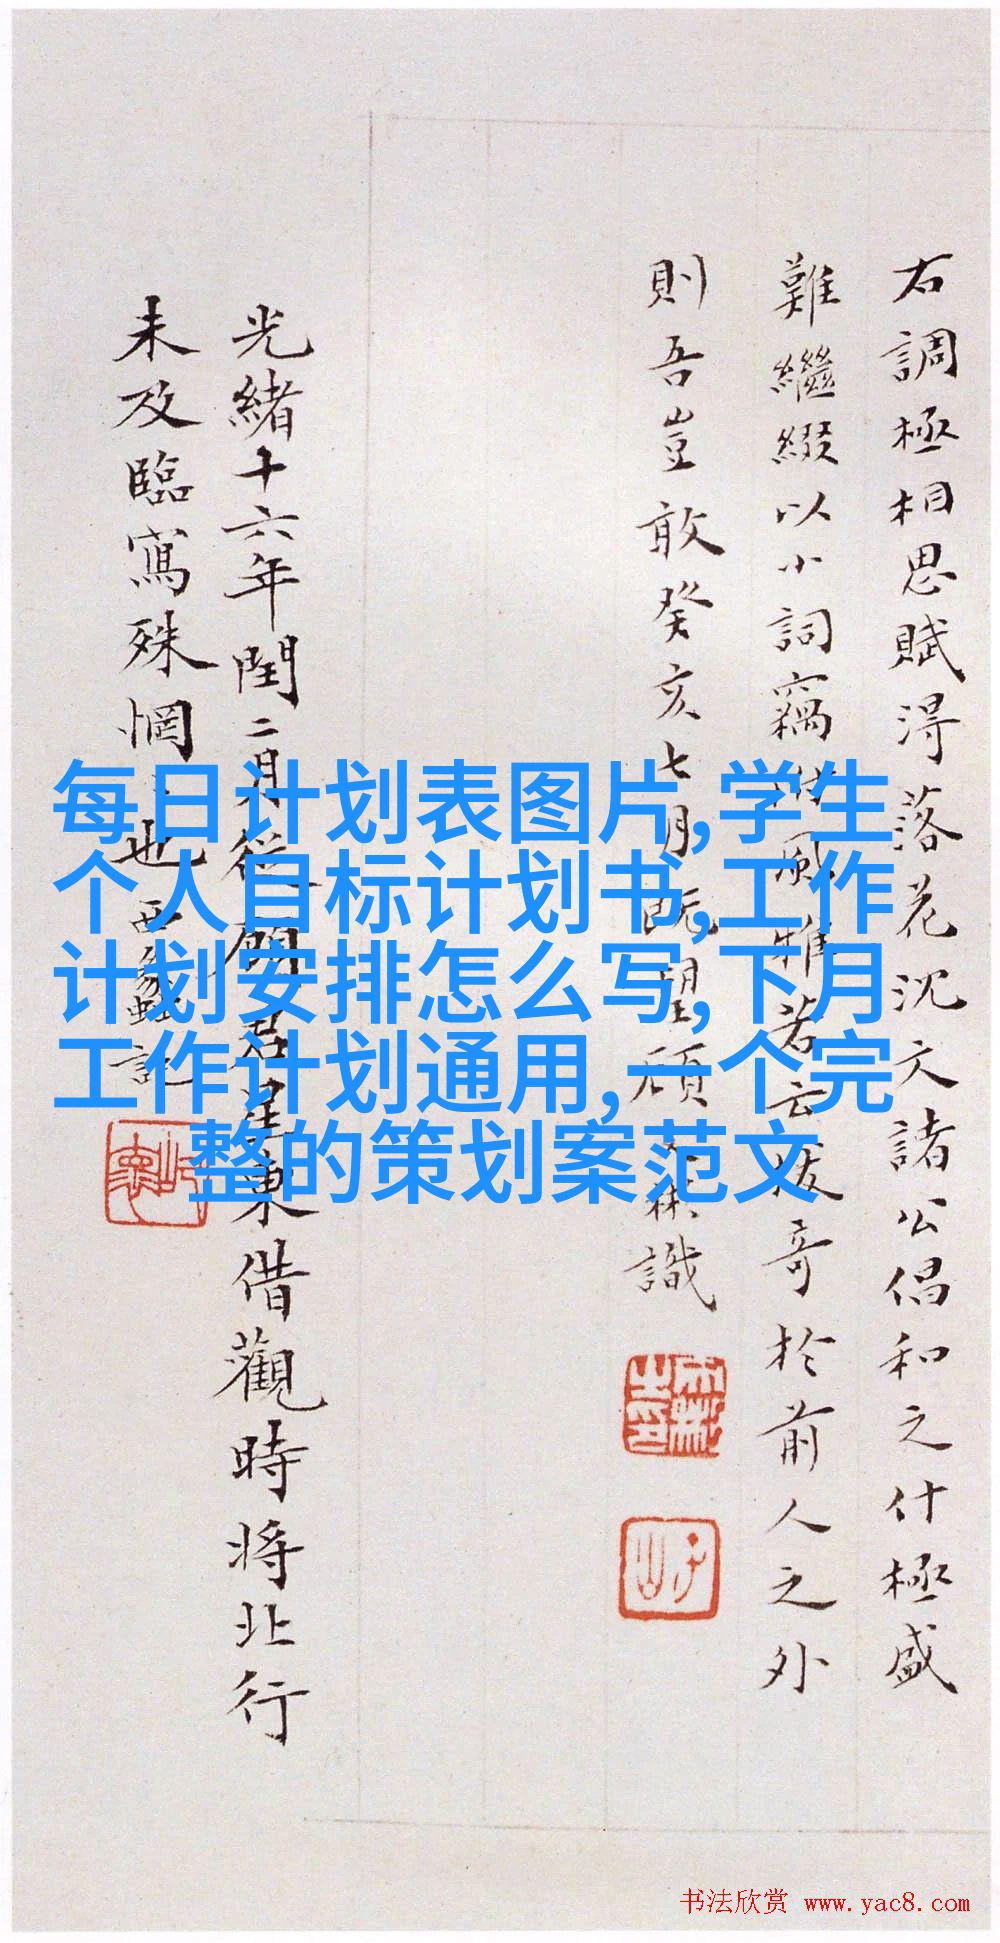 右調極相思賦得落花沈文諸公倡和之什極盛
難繼綴以小詞竊附風雅若云拔奇於前人之外
則吾豈敢癸亥七月既望碩 彬識
光緒十六年閏二月從顧君星東借觀時將北行
未及臨寫殊惘也西蠡記
每日计划表图片,学生
个人目标计划书,工作
计划安排怎么写,下月
工作计划通用,一个完
整的策划案范文
书法欣赏 www.yac8.com